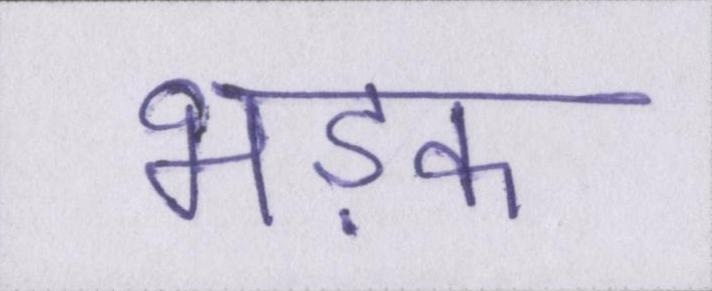 भड़क